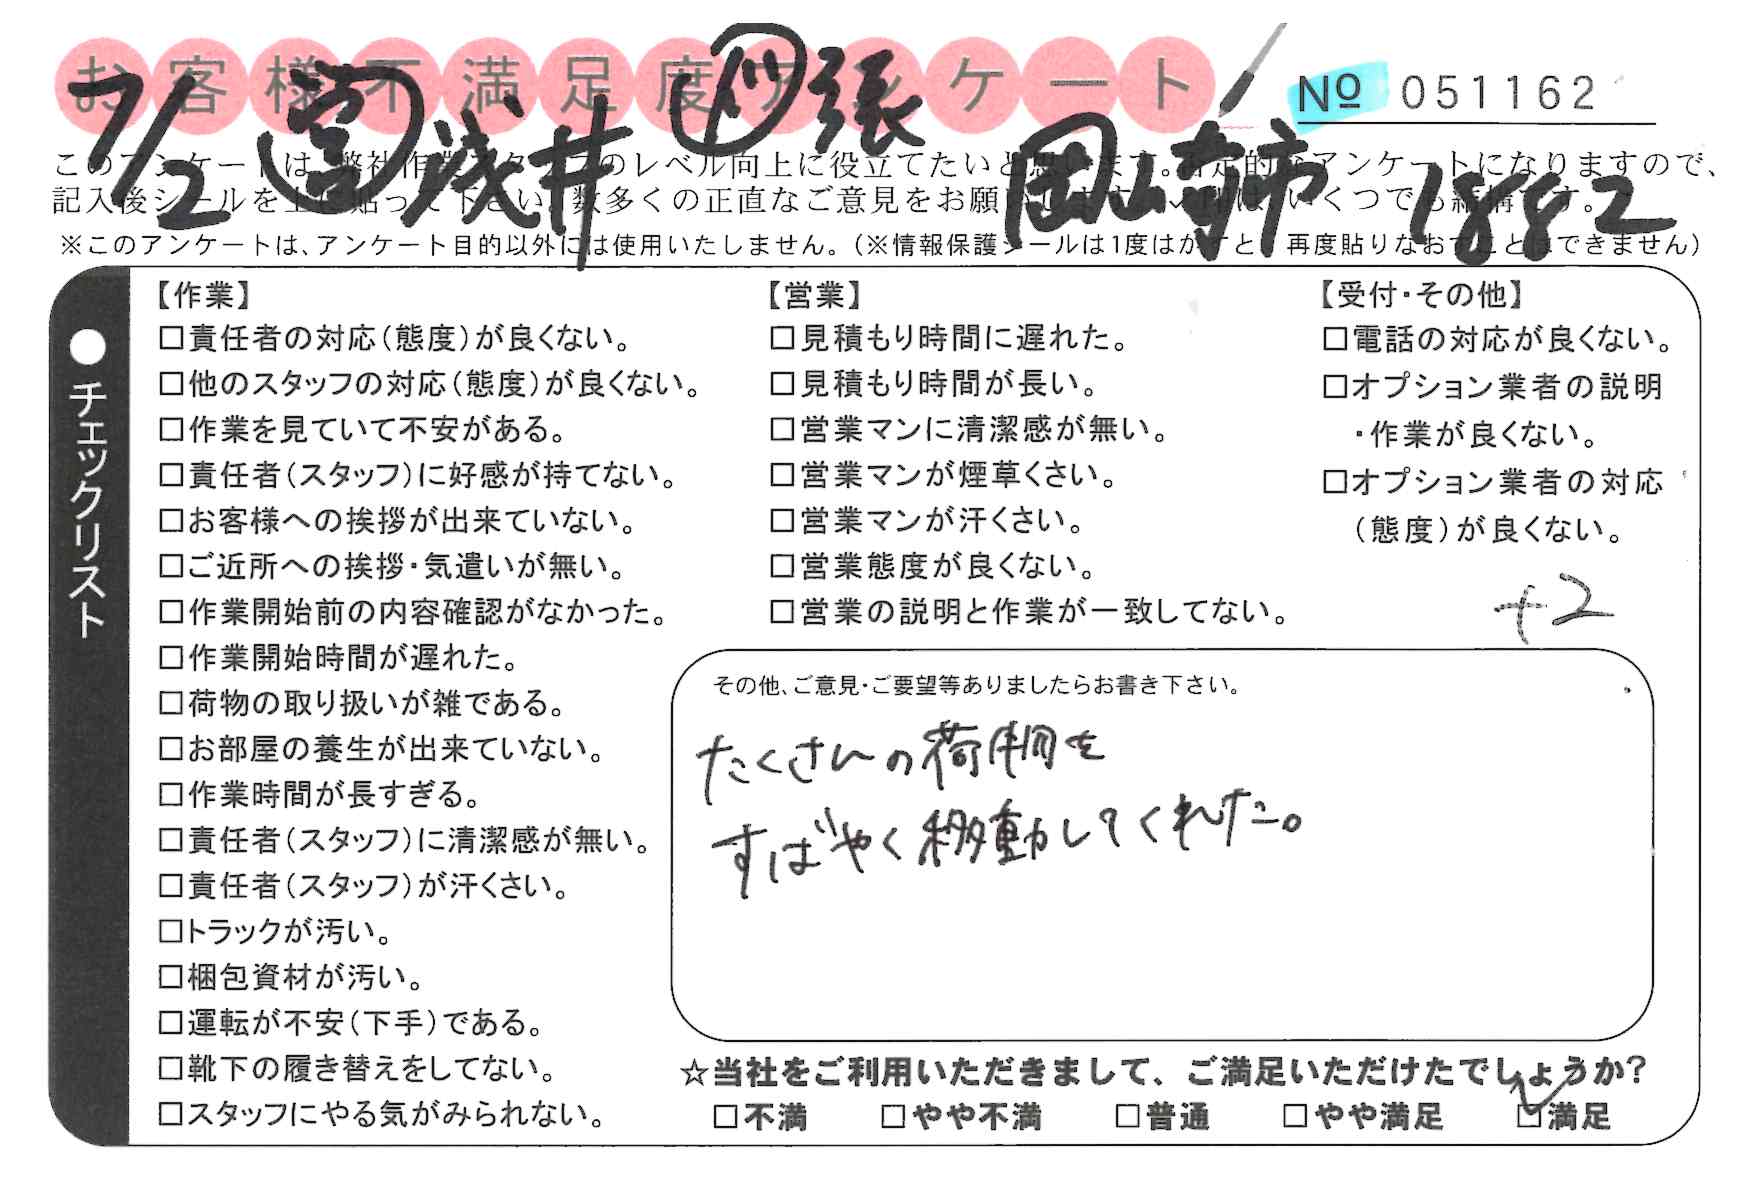 お客様不満足度アンケート
№ 051162
7/2 営 浅井 張 岡山南市 1882
このアンケートは、弊社作業スタッフのレベル向上に役立てたいと思います。否定的なアンケートになりますので、
記入後シールを上に貼って下さい。数多くの正直なご意見をお願いします。✓印は、いくつでも結構です。
※このアンケートは、アンケート目的以外には使用いたしません。（※情報保護シールは1度はがすと、再度貼りなおすことはできません）
●チェックリスト
【作業】
□責任者の対応（態度）が良くない。
□他のスタッフの対応（態度）が良くない。
□作業を見ていて不安がある。
□責任者（スタッフ）に好感が持てない。
□お客様への挨拶が出来ていない。
□ご近所への挨拶・気遣いが無い。
□作業開始前の内容確認がなかった。
□作業開始時間が遅れた。
□荷物の取り扱いが雑である。
□お部屋の養生が出来ていない。
□作業時間が長すぎる。
□責任者（スタッフ）に清潔感が無い。
□責任者（スタッフ）が汗くさい。
□トラックが汚い。
□梱包資材が汚い。
□運転が不安（下手）である。
□靴下の履き替えをしてない。
□スタッフにやる気がみられない。
【営業】
□見積もり時間に遅れた。
□見積もり時間が長い。
□営業マンに清潔感が無い。
□営業マンが煙草くさい。
□営業マンが汗くさい。
□営業態度が良くない。
□営業の説明と作業が一致してない。
【受付・その他】
□電話の対応が良くない。
□オプション業者の説明
・作業が良くない。
□オプション業者の対応
（態度）が良くない。
+2
その他、ご意見・ご要望等ありましたらお書き下さい。
たくさんの荷物を
すばやく移動してくれた。
☆当社をご利用いただきまして、ご満足いただけたでしょうか?
□不満 □やや不満 □普通 □やや満足 ☑満足